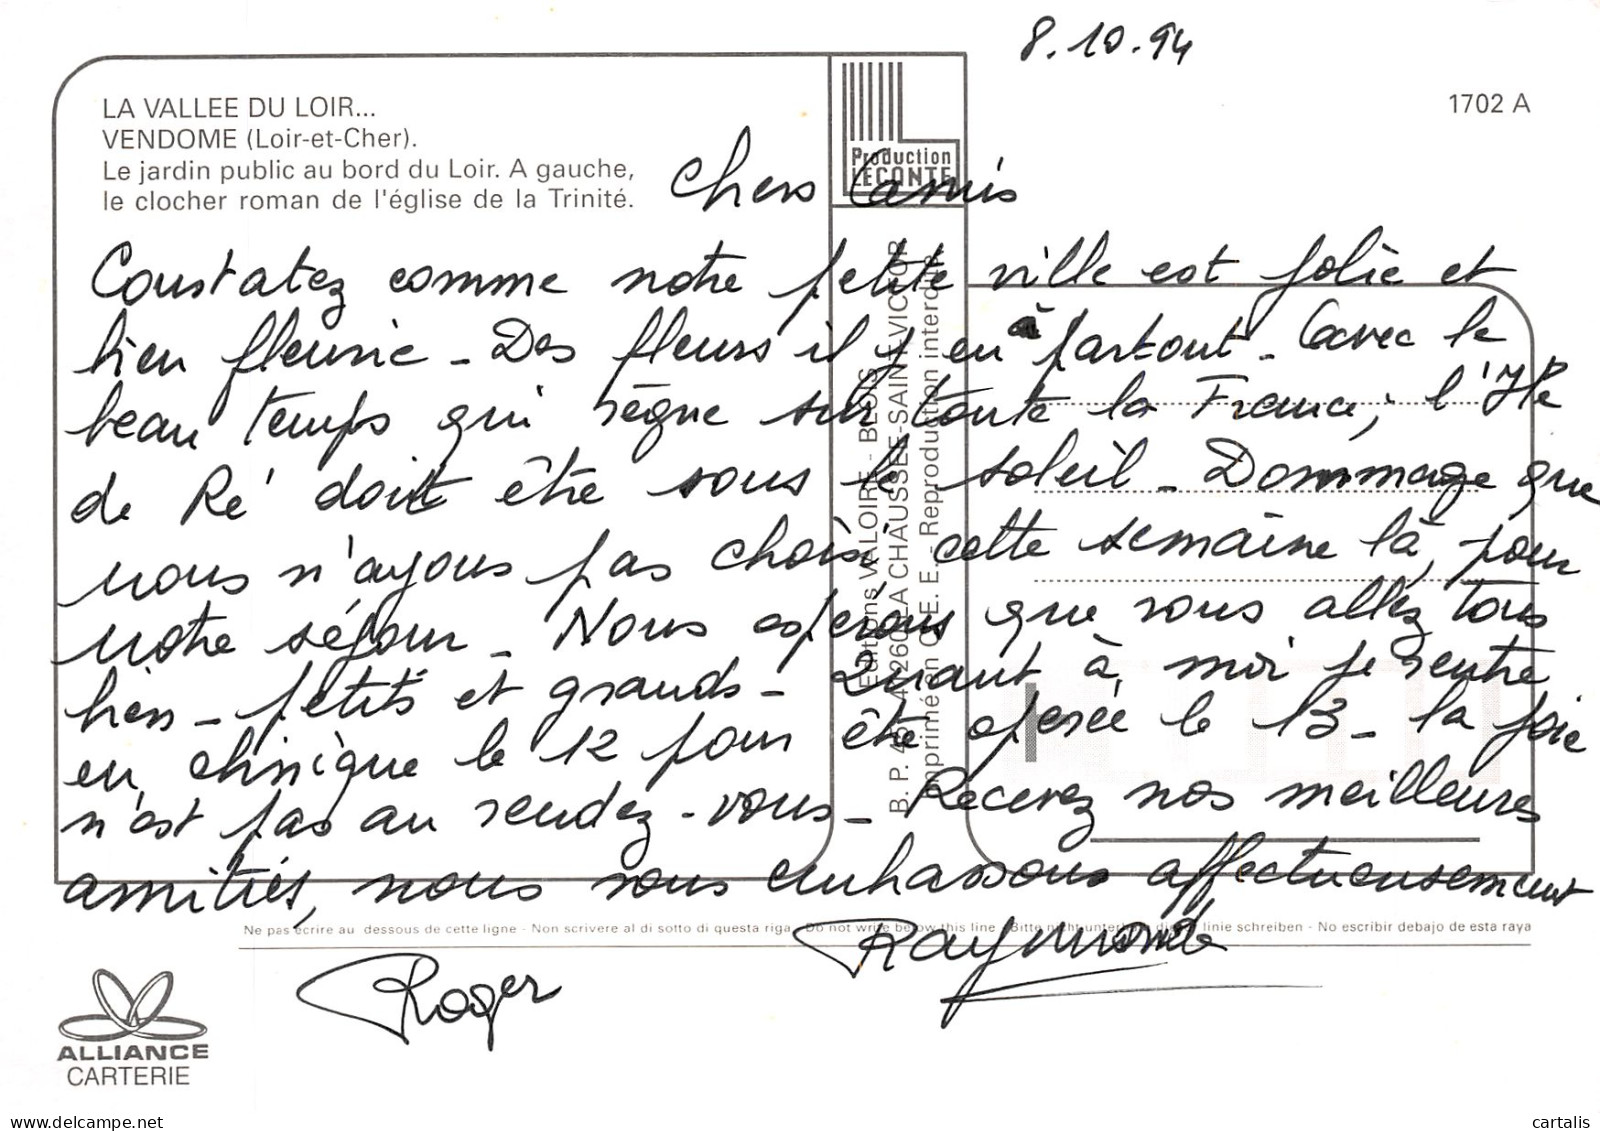 8.10.94
LA VALLEE DU LOIR...
VENDOME (Loir-et-Cher).
Le jardin public au bord du Loir. A gauche,
le clocher roman de l'église de la Trinité.
1702 A
Production
LECONTE
Editions VALOIRE - BLOIS
B. P. 41260 LA CHAUSSEE-SAINT-VICTOR
Imprimé en C. E. E. - Reproduction interdite
Chers Camis
Constatez comme notre petite ville est jolie et
bien fleurie - Des fleurs il y en à partout - avec le
beau temps qui règne sur toute la France, l'Ile
de Ré doit être sous le soleil - Dommage que
nous n'ayons pas choisi cette semaine là, pour
notre séjour - Nous espérons que vous allez tous
bien - petits et grands - Quant à moi je rentre
en clinique le 12 pour être opérée le 13 - la joie
n'est pas au rendez-vous - Recevez nos meilleures
amitiés, nous vous embrassons affectueusement
Ne pas écrire au dessous de cette ligne - Non scrivere al di sotto di questa riga - Do not write below this line - Bitte nicht unterhalb dieser linie schreiben - No escribir debajo de esta raya
Raymonde
Roger
ALLIANCE
CARTERIE
cartalis